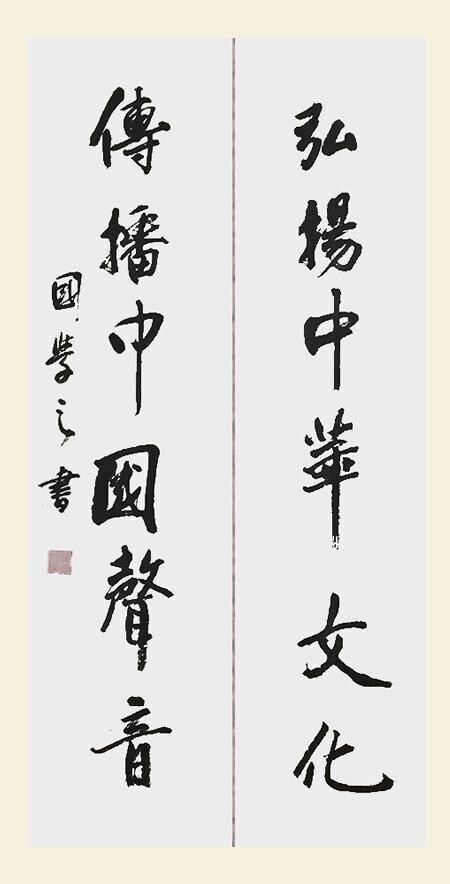 弘揚中華文化
傳播中國聲音
國學之書